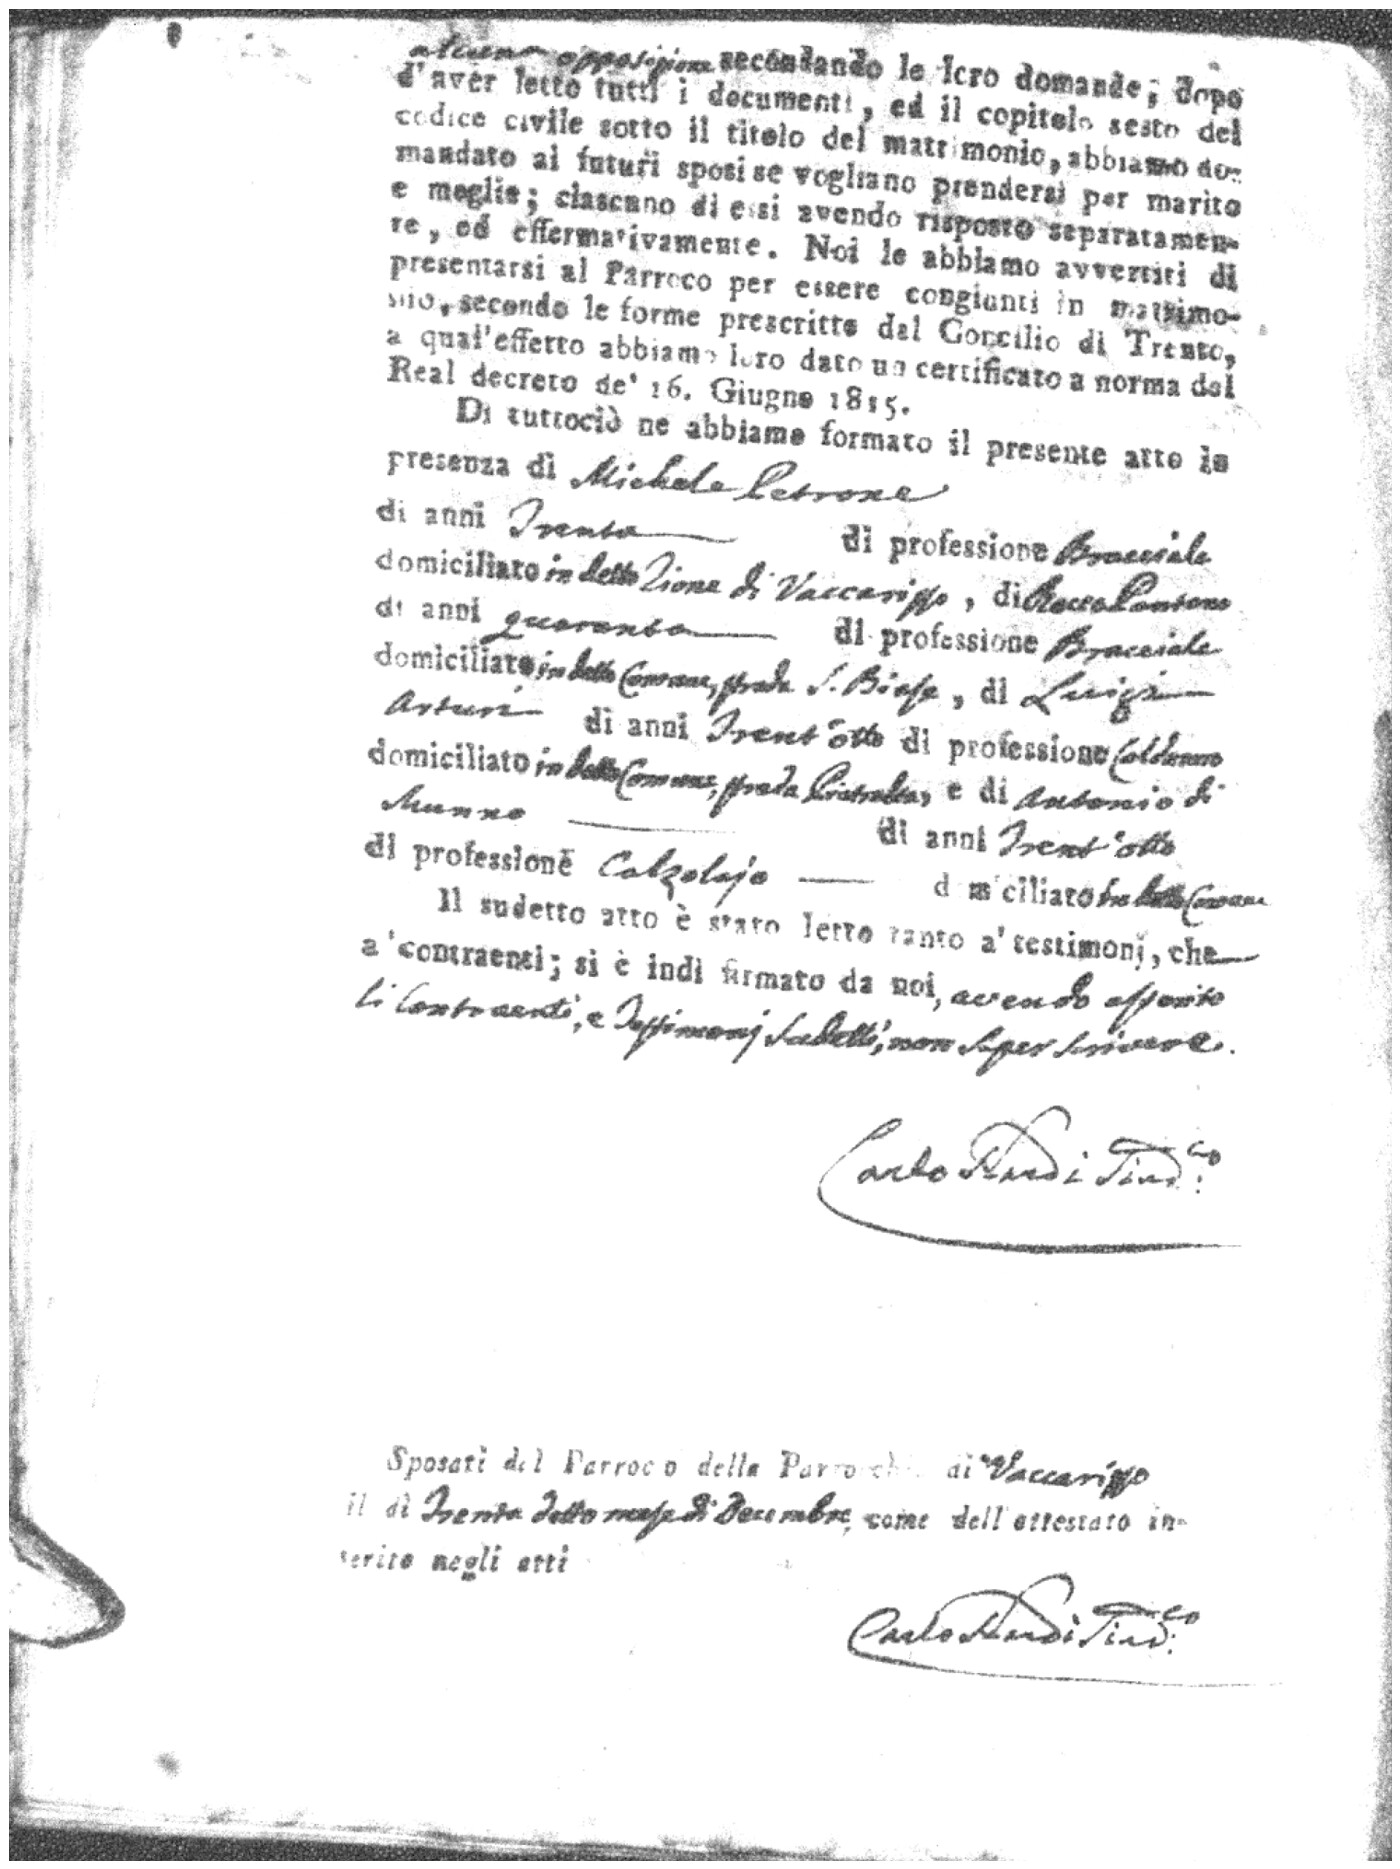 alcuna opposizione secondando le loro domande; dopo
d'aver letto tutti i documenti, ed il capitolo sesto del
codice civile sotto il titolo del matrimonio, abbiamo do-
mandato ai futuri sposi se vogliano prendersi per marito
e moglie; ciascuno di essi avendo risposto separatamen-
te, ed effermativamente. Noi le abbiamo avvertiti di
presentarsi al Parroco per essere congiunti in matrimo-
nio, secondo le forme prescritte dal Concilio di Trento,
a qual'effetto abbiamo loro dato un certificato a norma del
Real decreto de' 16. Giugno 1815.
Di tuttociò ne abbiamo formato il presente atto in
presenza di Michele Petrone
di anni Trenta di professione Bracciale
domiciliato in detto Rione di Vaccarizzo, di Rocco
di anni quaranta di professione Bracciale
domiciliato in detto Comune, strada S. Biase, di Luigi
Arturi di anni Trent'otto di professione
domiciliato in detto Comune, strada e di Antonio di
Munno di anni Trent'otto
di professione Calzolajo domiciliato in detto Comune
Il sudetto atto è stato letto tanto a' testimonj, che
a' contraenti; si è indi firmato da noi, avendo asserito
li Contraenti, e Testimonj sudetti, non saper scrivere.
Carlo Sind.co
Sposati dal Parroco della Parrocchia di Vaccarizzo
il dì Trenta detto mese di Decembre, come dell'attestato in-
serito negli atti
Carlo Sind.co